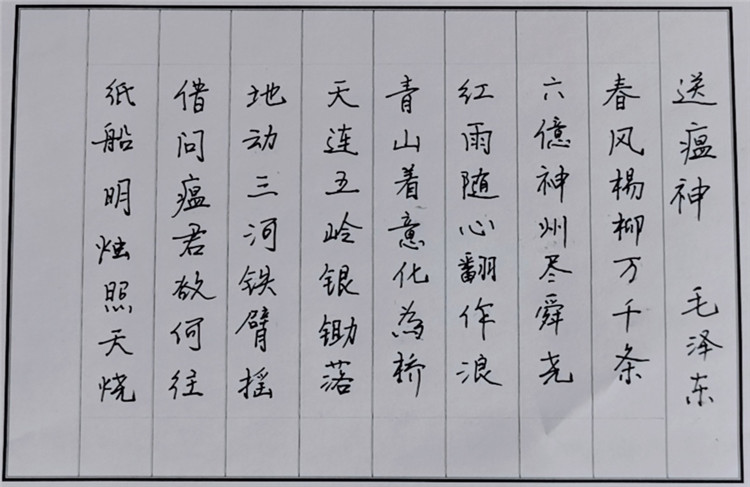 送瘟神 毛泽东
春风杨柳万千条
六億神州尽舜尧
红雨随心翻作浪
青山着意化為桥
天连五岭银锄落
地动三河铁臂摇
借问瘟君欲何往
纸船明烛照天烧